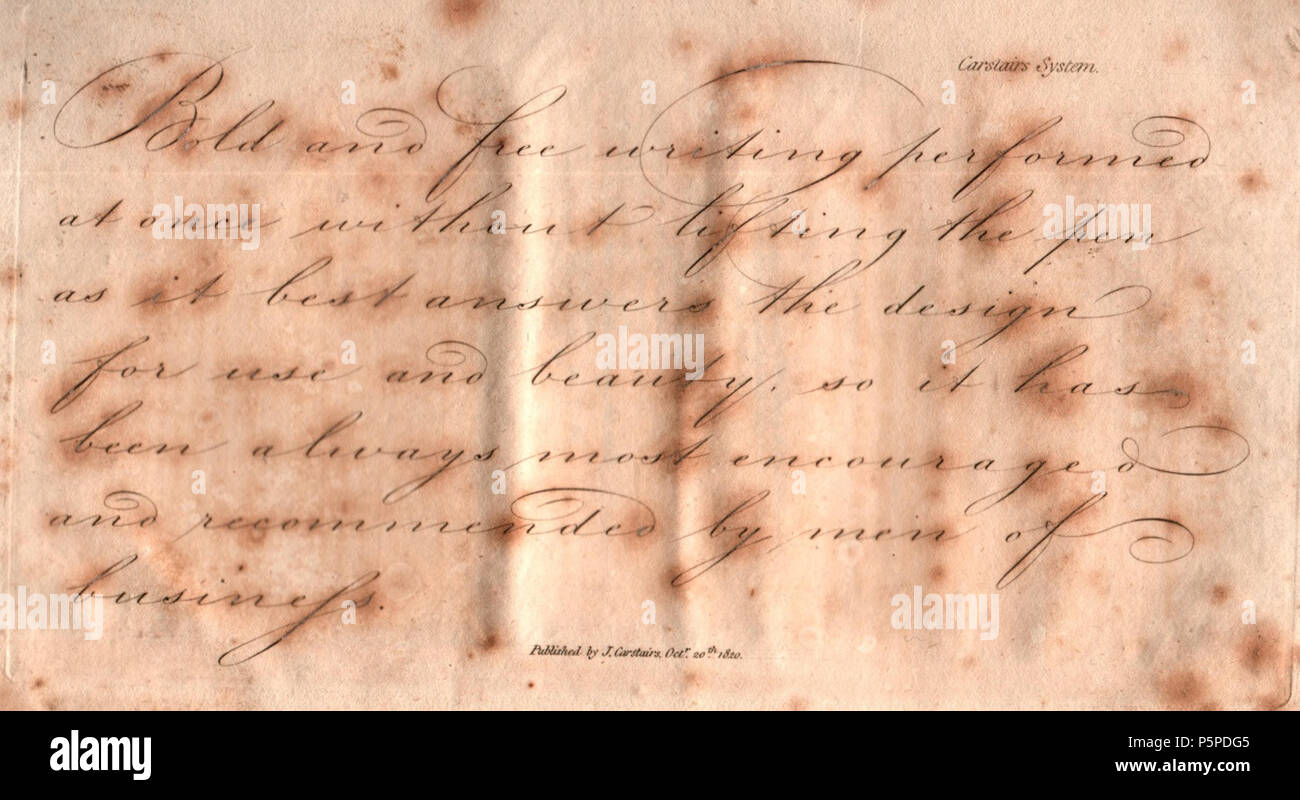 Carstairs System.
Bold and free writing performed
at once without lifting the pen
as it best answers the design
for use and beauty, so it has
been always most encouraged
and recommended by men of
businefs.
Published by J. Carstairs, Octr. 20th 1820.
alamy
Image ID: P5PDG5
www.alamy.com